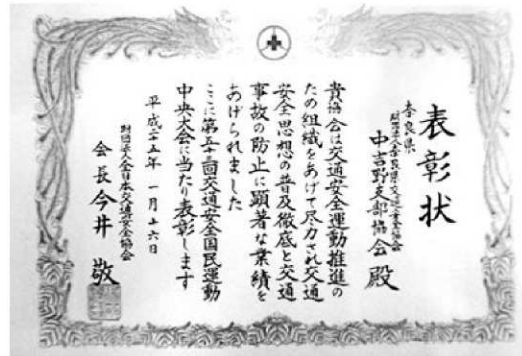 表彰状
奈良県
財団法人奈良県交通安全協会
中吉野支部協会 殿
貴協会は交通安全運動推進の
ため組織をあげて尽力され交通
安全思想の普及徹底と交通
事故の防止に顕著な業績を
あげられました
ここに第五十三回交通安全国民運動
中央大会に当たり表彰します
平成二十五年一月十六日
財団法人全日本交通安全協会
会長 今井 敬